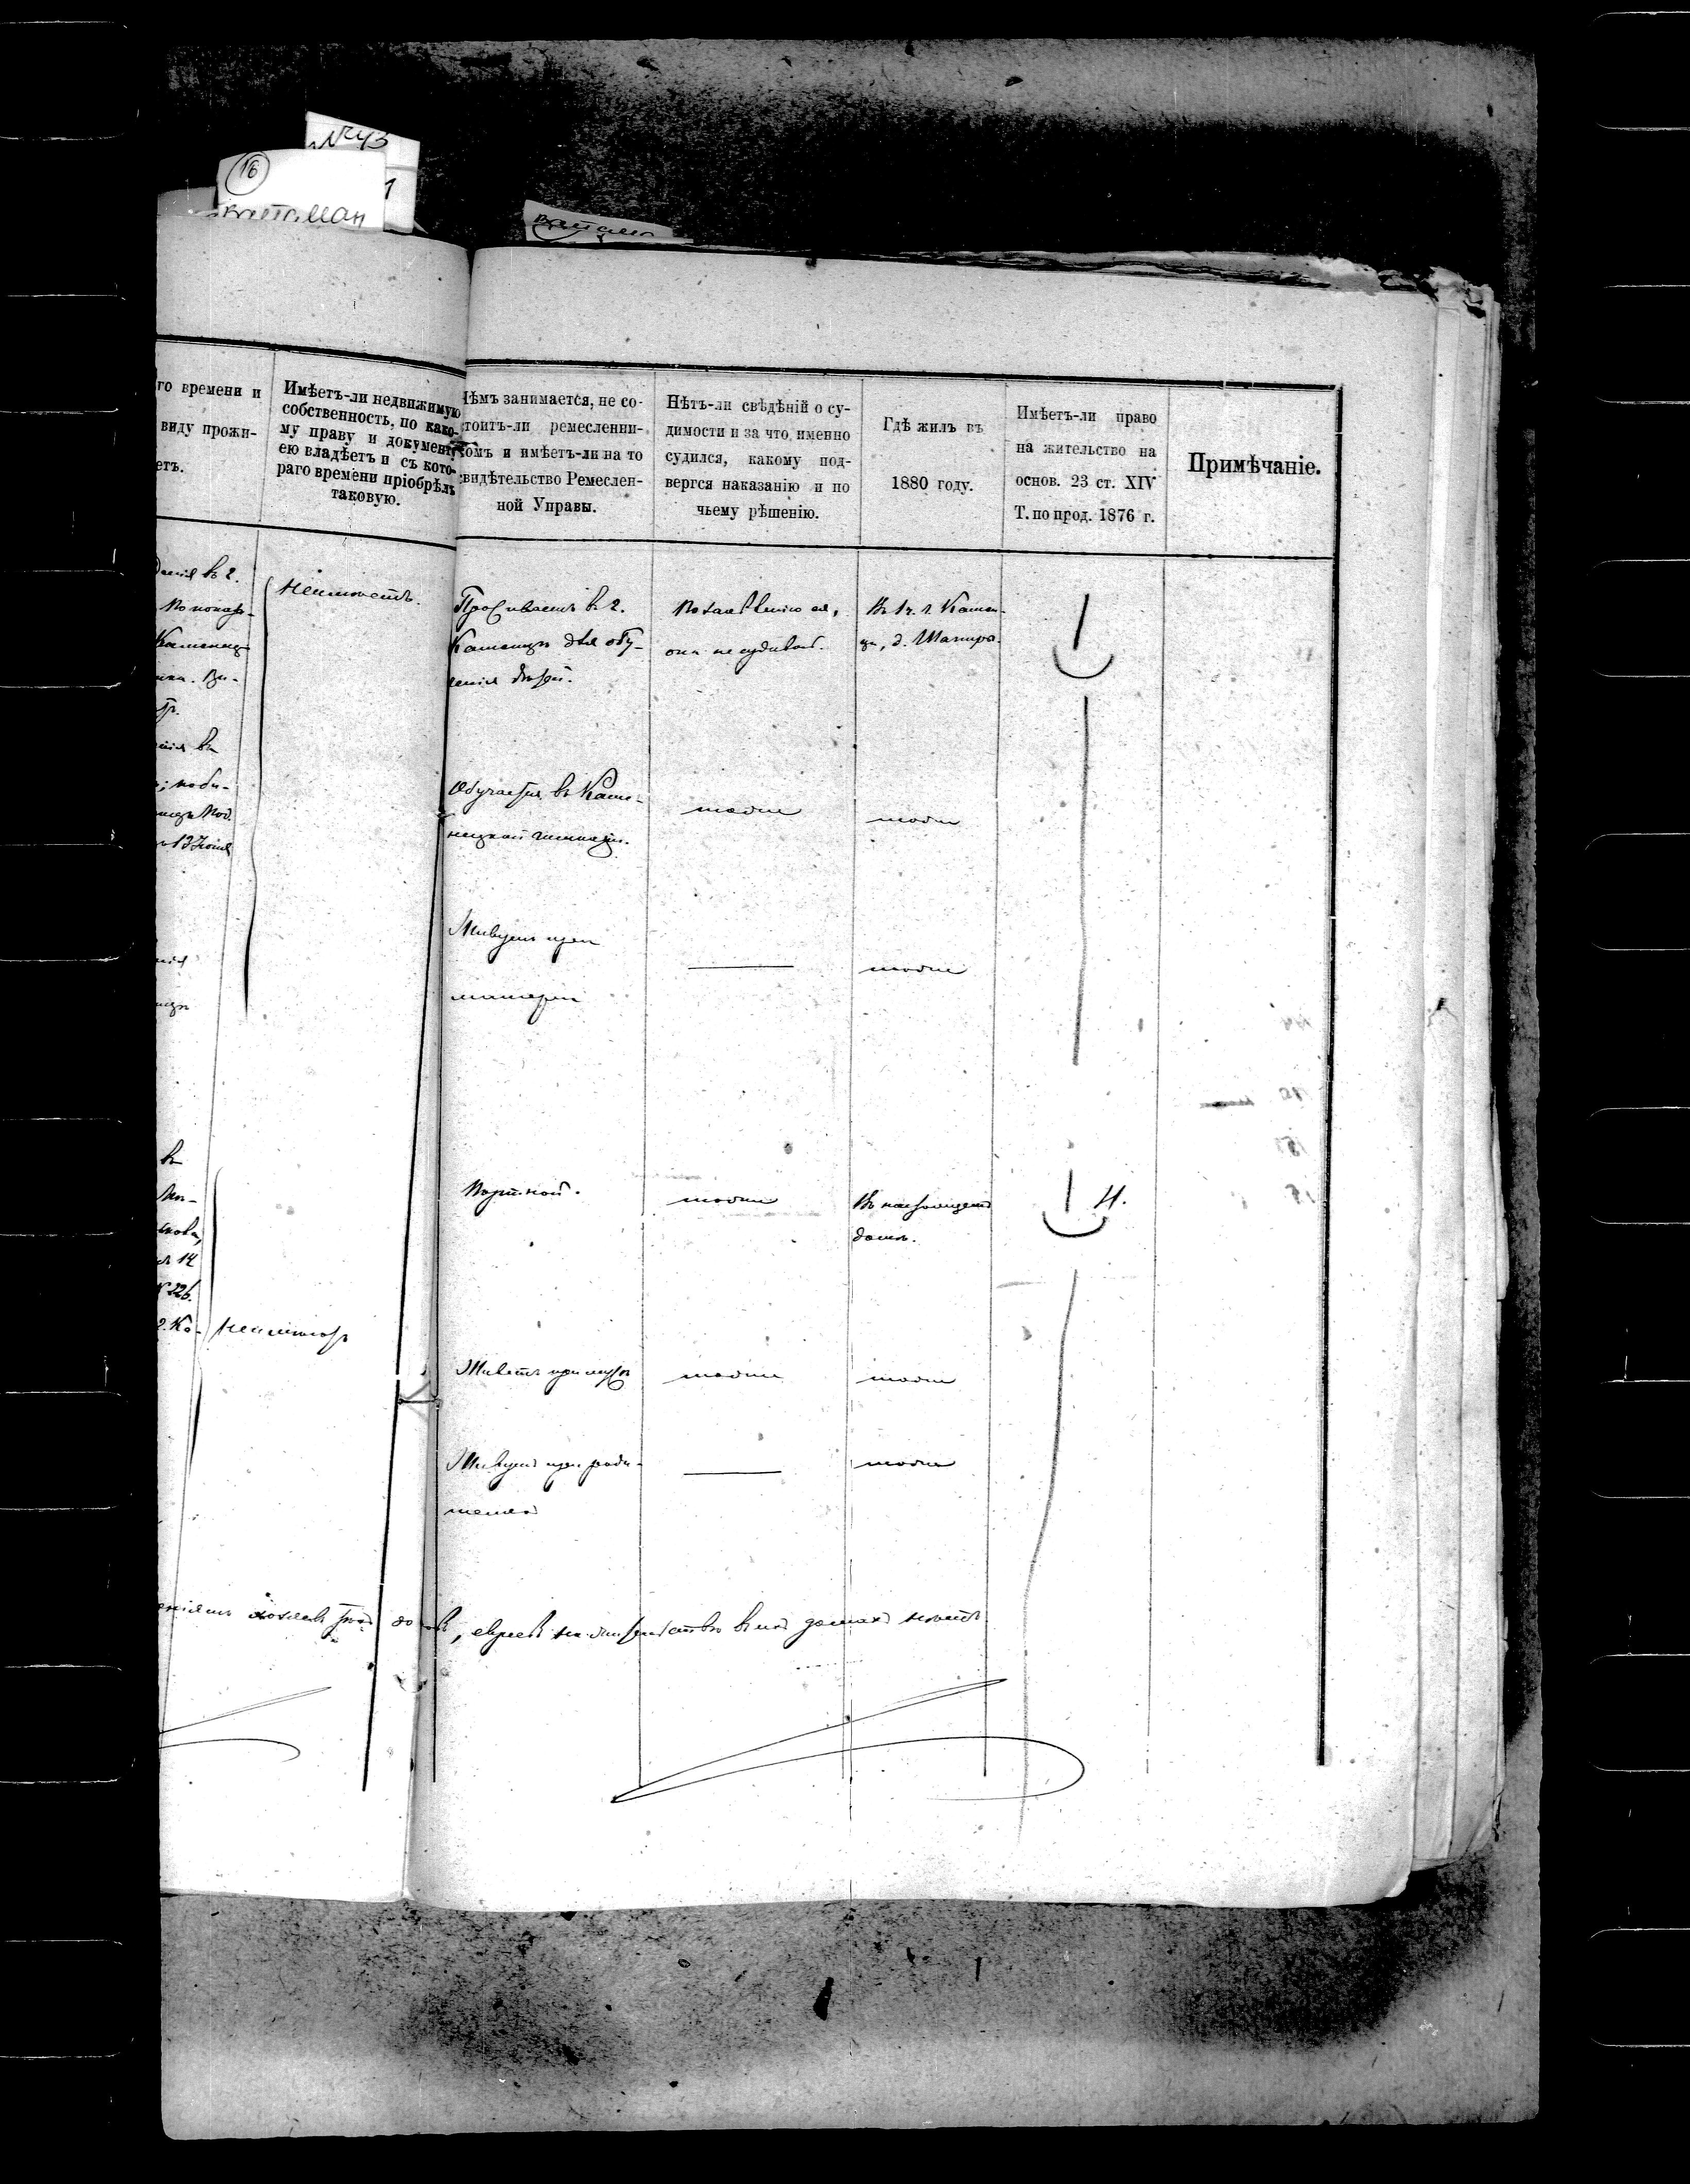 №43
16
1
Ватаман
го времени и
виду прожи-
етъ.
Имѣетъ-ли недвижимую
собственность, по како-
му праву и документу
ею владѣетъ и съ кото-
раго времени пріобрѣлъ
таковую.
Чѣмъ занимается, не со-
стоитъ-ли ремесленни-
комъ и имѣетъ-ли на то
свидѣтельство Ремеслен-
ной Управы.
Нѣтъ-ли свѣдѣній о су-
димости и за что именно
судился, какому под-
вергся наказанію и по
чьему рѣшенію.
Гдѣ жилъ въ
1880 году.
Имѣетъ-ли право
на жительство на
основ. 23 ст. XIV
Т. по прод. 1876 г.
Примѣчаніе.
въ г.
Каменец
въ
13 Іюня
въ
14
№ 226.
г. Ка-
Неимѣетъ.
Неимѣютъ
Проживаетъ въ г.
Каменцѣ для обу-
ченія дѣтей.
По заявленію ея,
она не судилась.
Въ 1 ч. г. Камен-
цѣ, д. Шапиро.
Обучается въ Каме-
нецкой гимназіи.
тоже
тоже
Живутъ при
матери
тоже
Портной.
тоже
Въ настоящемъ
домѣ.
Н.
Живетъ при мужѣ
тоже
тоже
Живутъ при роди-
теляхъ
тоже
домовъ, евреевъ на жительствѣ въ ихъ домахъ нѣтъ.